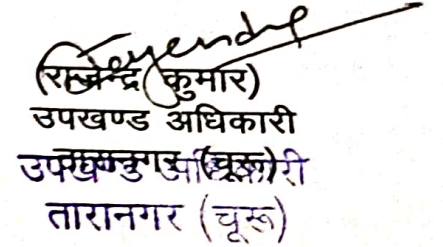 (राजेन्द्र कुमार)
उपखण्ड अधिकारी
तारानगर (चूरू)
उपखण्ड अधिकारी
तारानगर (चूरू)